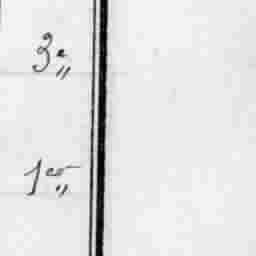 3e „
1er „